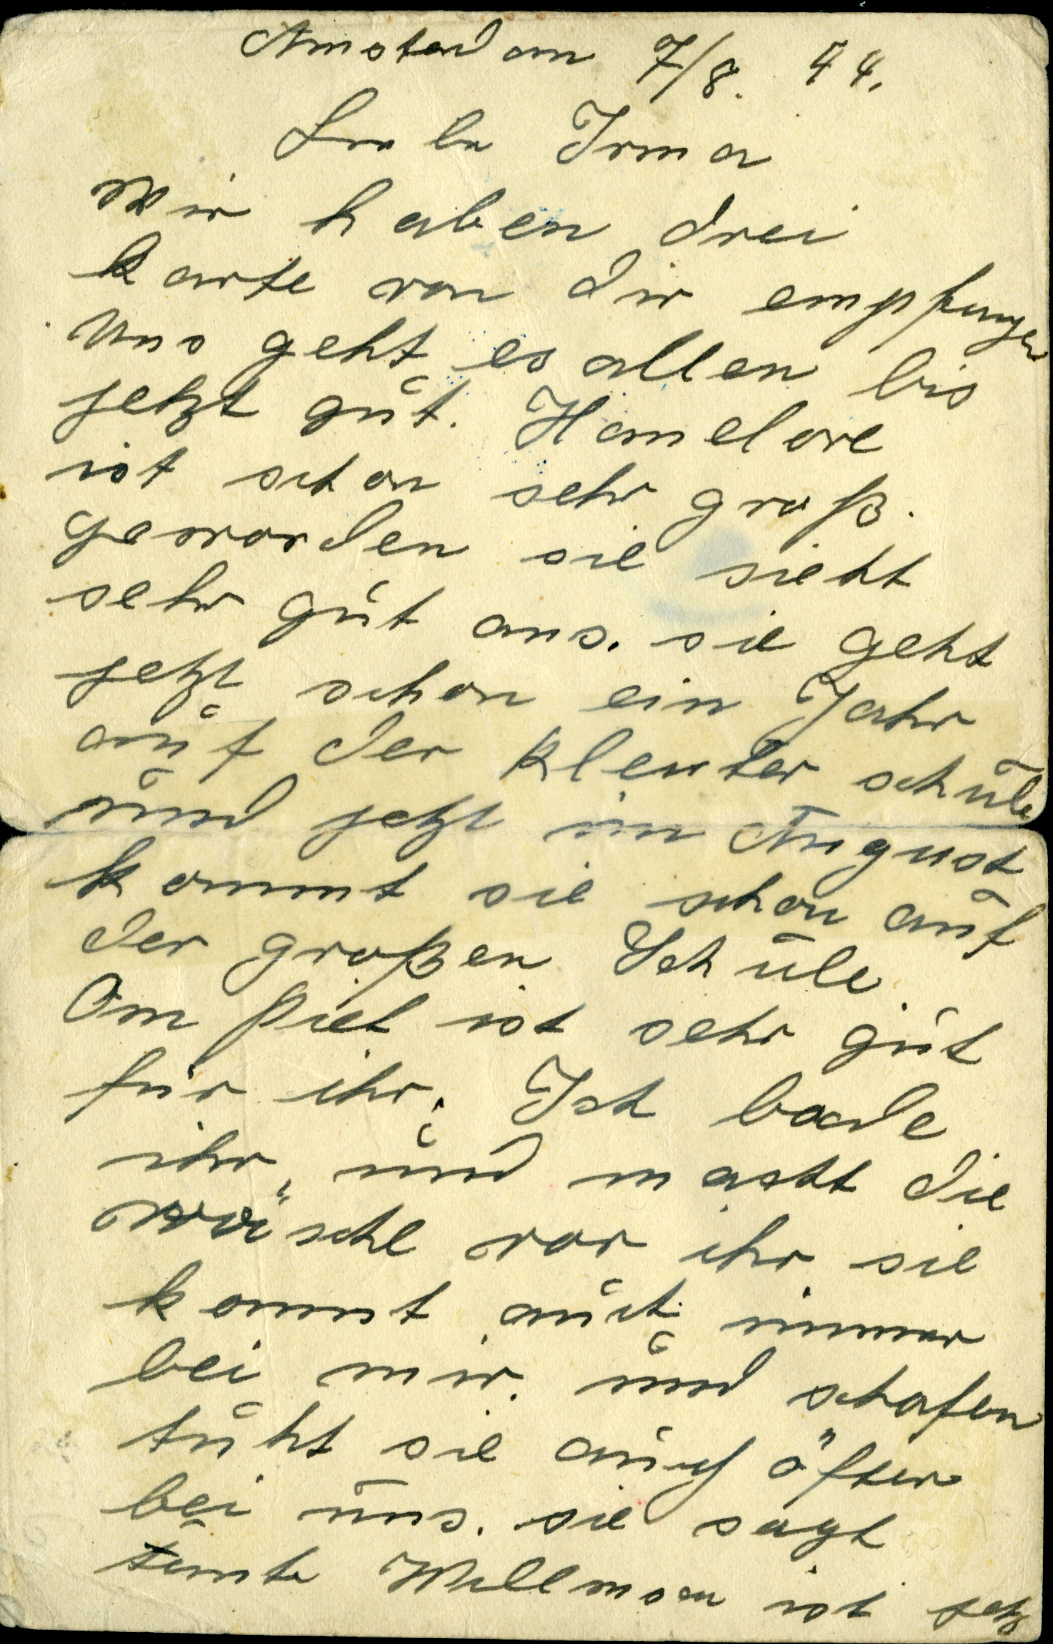 Amsterdam 7/8. 44.
Liebe Irma
Wir haben drei
karte von dir empfangen
Uns geht es allen bis
jetzt gut. Hanelore
ist schon sehr groß.
geworden sie sieht
sehr gut aus. sie geht
jetzt schon ein Jahr
auf der kleuter schule
und jetzt im August
kommt sie schon auf
der großen Schule.
Om Piet ist sehr gut
für ihr. Ich bade
ihr, und macht die
wäsche vor ihr sie
kommt auch immer
bei mir. und schafen
tuht sie auch öfter
bei uns. sie sagt
tante ist jetz